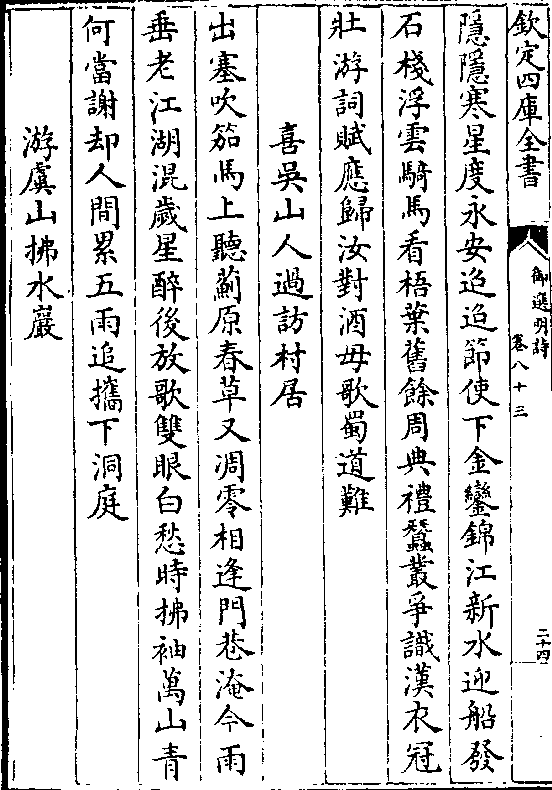 欽定四庫全書
御選明詩
卷八十三
二十四
隱隱寒星度永安迢迢節使下金鑾錦江新水迎船發
石棧浮雲騎馬看梧葉舊餘周典禮蠶叢爭識漢衣冠
壯游詞賦應歸汝對酒毋歌蜀道難
喜吳山人過訪村居
出塞吹笳馬上聽薊原春草又凋零相逢門巷淹今雨
垂老江湖混歲星醉後放歌雙眼白愁時拂袖萬山青
何當謝却人間累五雨追攜下洞庭
游虞山拂水巖